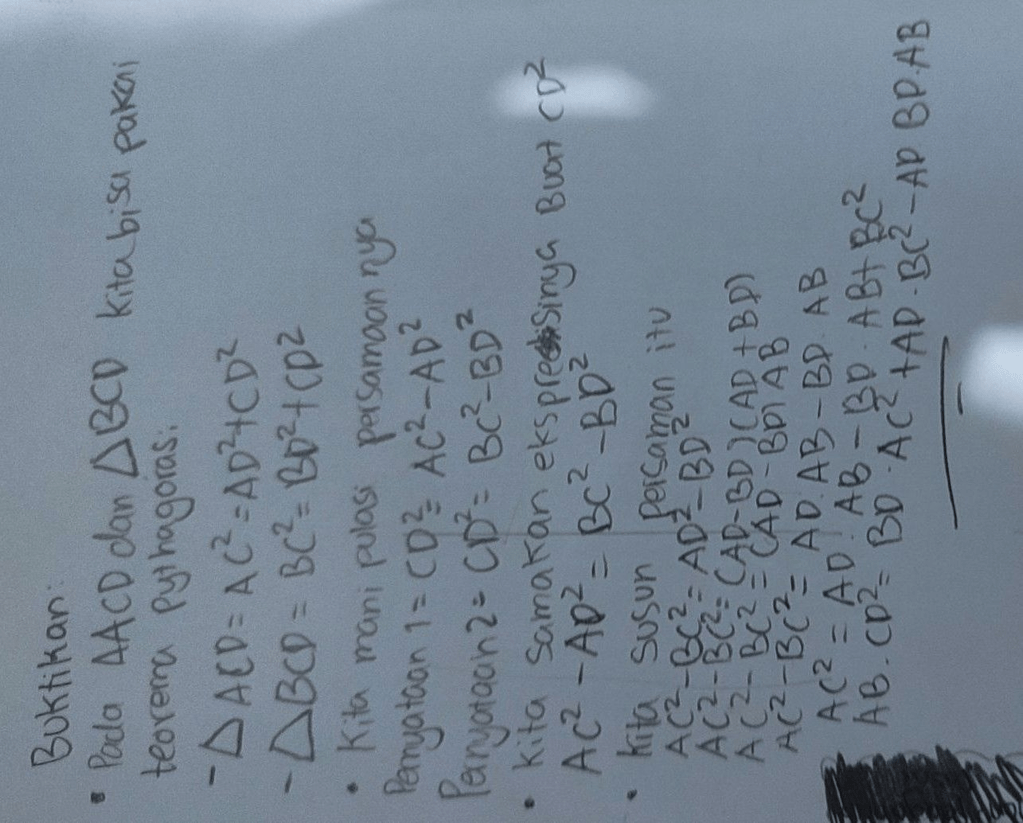 Buktikan:
• Pada ΔACD dan ΔBCD kita bisa pakai
teorema pythagoras:
- Δ ACD = AC² = AD² + CD²
- Δ BCD = BC² = BD² + CD²
• Kita mani pulasi persamaan nya
Pernyataan 1 = CD² = AC² - AD²
Pernyataan 2 = CD² = BC² - BD²
• Kita samakan ekspresinya Buat CD²
AC² - AD² = BC² - BD²
• Kita susun persaman itu
AC² - BC² = AD² - BD²
AC² - BC² = (AD - BD)(AD + BD)
AC² - BC² = (AD - BD) AB
AC² - BC² = AD . AB - BD . AB
AC² = AD . AB - BD . AB + BC²
AB . CD² = BD . AC² + AD . BC² - AD BD . AB